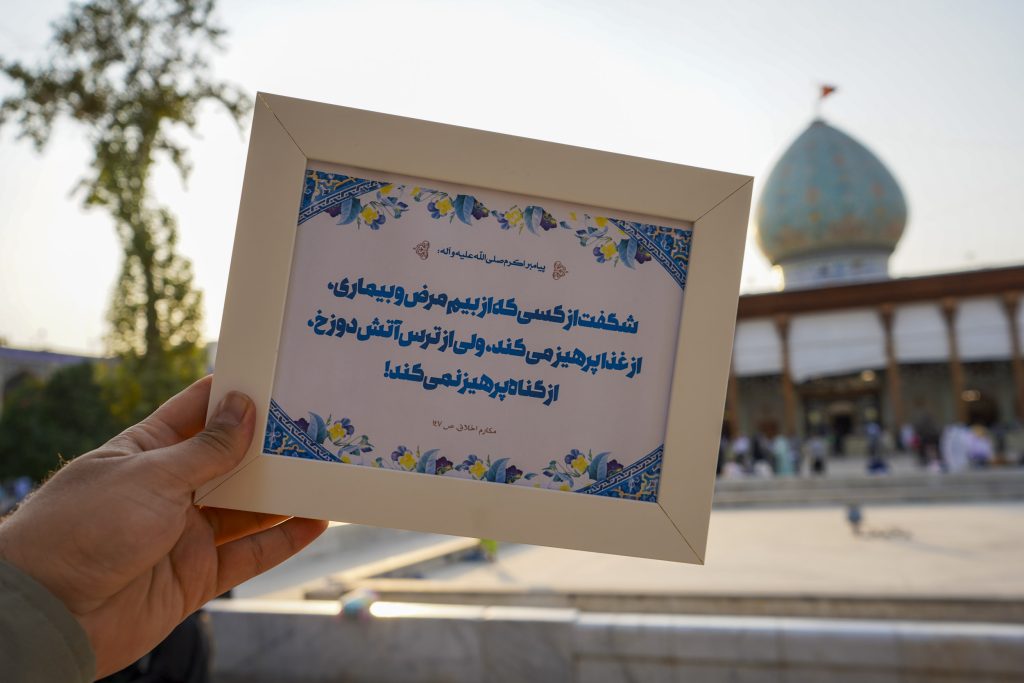 پیامبر اکرم صلی الله علیه و آله:
شگفت از کسی که از بیم مرض و بیماری،
از غذا پرهیز می‌کند، ولی از ترس آتش دوزخ،
از گناه پرهیز نمی‌کند!
مکارم اخلاق، ص ۱۴۷